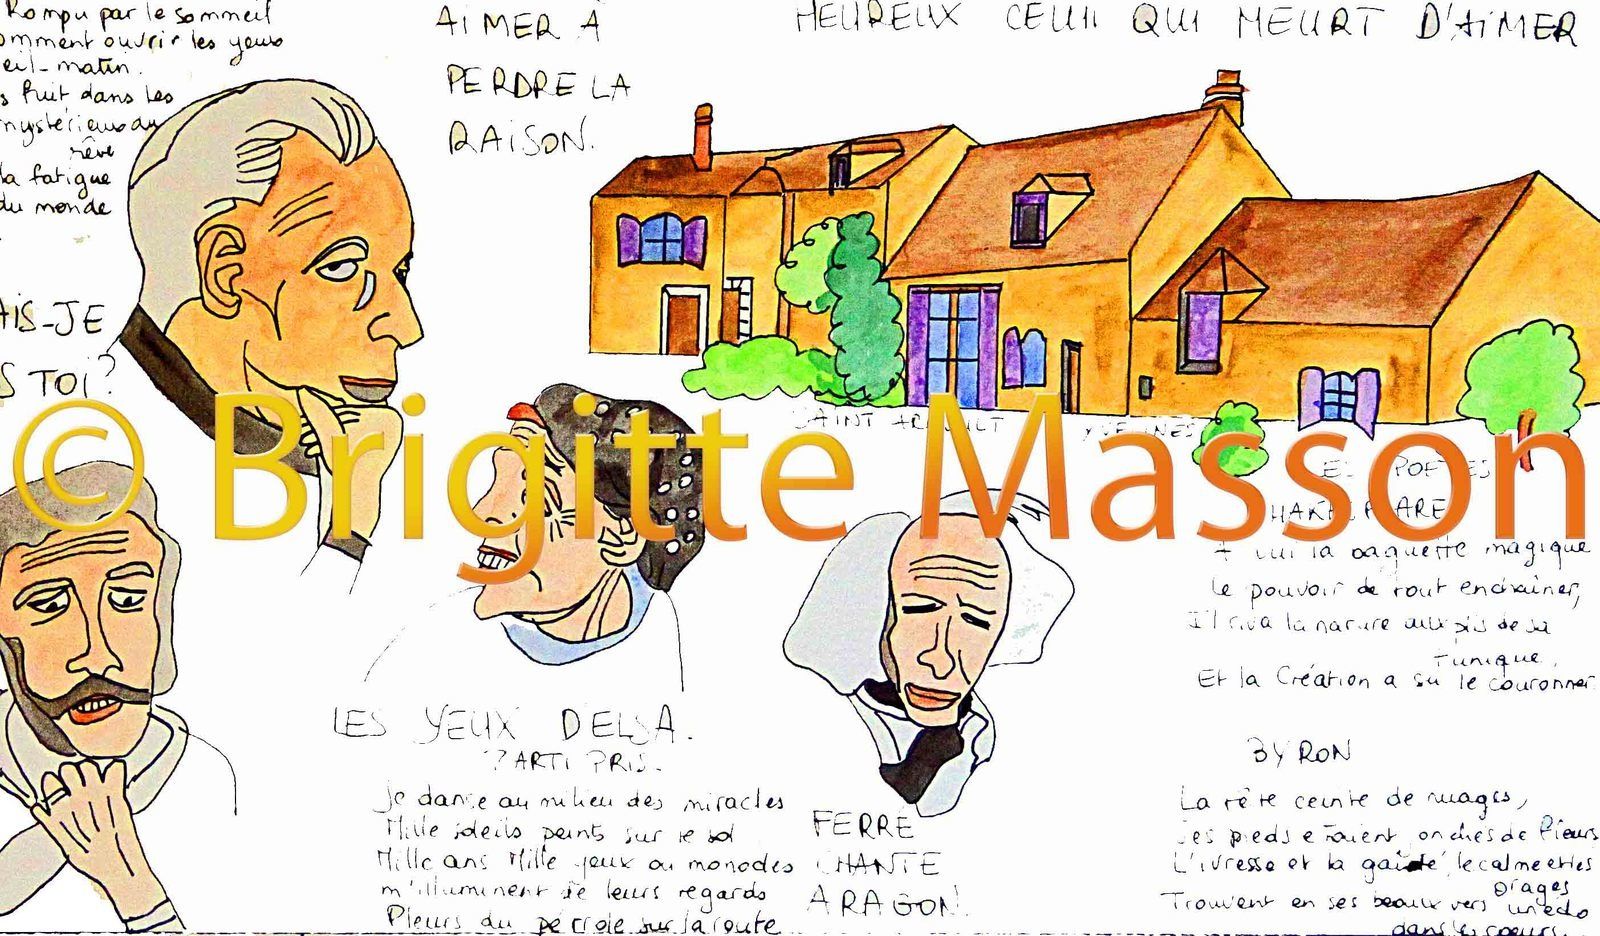 Rompu par le sommeil
omment ouvrir les yeux
eil-matin.
s fuit dans les
mystérieux du
rêve
la fatigue
du monde
AIS-JE
S TOI?
AIMER À
PERDRE LA
RAISON.
HEUREUX CELUI QUI MEURT D'AIMER
SAINT ARNOULT YVELINES
© Brigitte Masson
LES POÈTES
SHAKESPEARE
A lui la baguette magique
le pouvoir de tout enchaîner,
Il riva la nature aux pis de sa
Tunique,
Et la Création a su le couronner.
LES YEUX D'ELSA.
PARTI PRIS.
Je danse au milieu des miracles
Mille soleils peints sur le sol
Mille ans Mille yeux ou monocles
m'illuminent de leurs regards
Pleurs du pétrole sur la route
FERRE
CHANTE
ARAGON.
BYRON
La tête ceinte de nuages,
ses pieds étaient onchés de fleurs
L'ivresse et la gaieté, le calme et les
orages
Trouvent en ses beaux vers un écho
dans les coeurs.